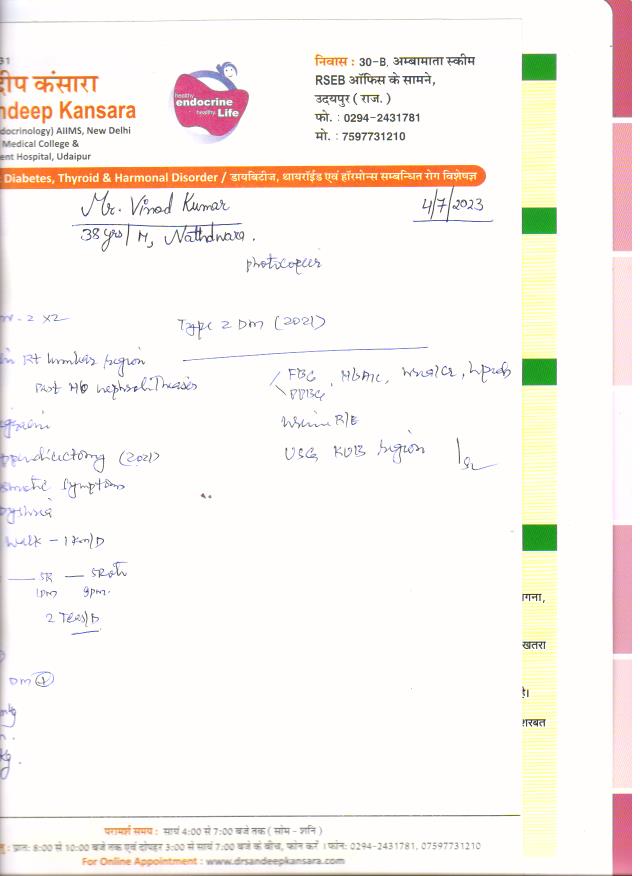 31
दीप कंसारा
ndeep Kansara
docrinology) AIIMS, New Delhi
Medical College &
ent Hospital, Udaipur
healthy
endocrine
healthy Life
निवास : 30-B, अम्बामाता स्कीम
RSEB ऑफिस के सामने,
उदयपुर ( राज. )
फो. : 0294-2431781
मो. : 7597731210
Diabetes, Thyroid & Harmonal Disorder / डायबिटीज, थायरॉईड एवं हॉरमोन्स सम्बन्धित रोग विशेषज्ञ
Mr. Vinod Kumar
4/7/2023
38 yrs/M, Nathdwara.
photocopier
2 x2
Type 2 DM (2021)
in Rt lumbar region
FBG, HbA1c,
Past H/O nephrolithiasis
PPBG
urine R/E
ppendicectomy (2021)
USG KUB region
symptoms
walk - 1 Km/D
5R
1pm 9pm.
2 Teas/D
DM +
kg.
गना,
खतरा
है।
शरबत
परामर्श समय : सायं 4:00 से 7:00 बजे तक ( सोम - शनि )
तु : प्रातः 8:00 से 10:00 बजे तक एवं दोपहर 3:00 से सायं 7:00 बजे के बीच, फोन करें । फोन: 0294-2431781, 07597731210
For Online Appointment : www.drsandeepkansara.com